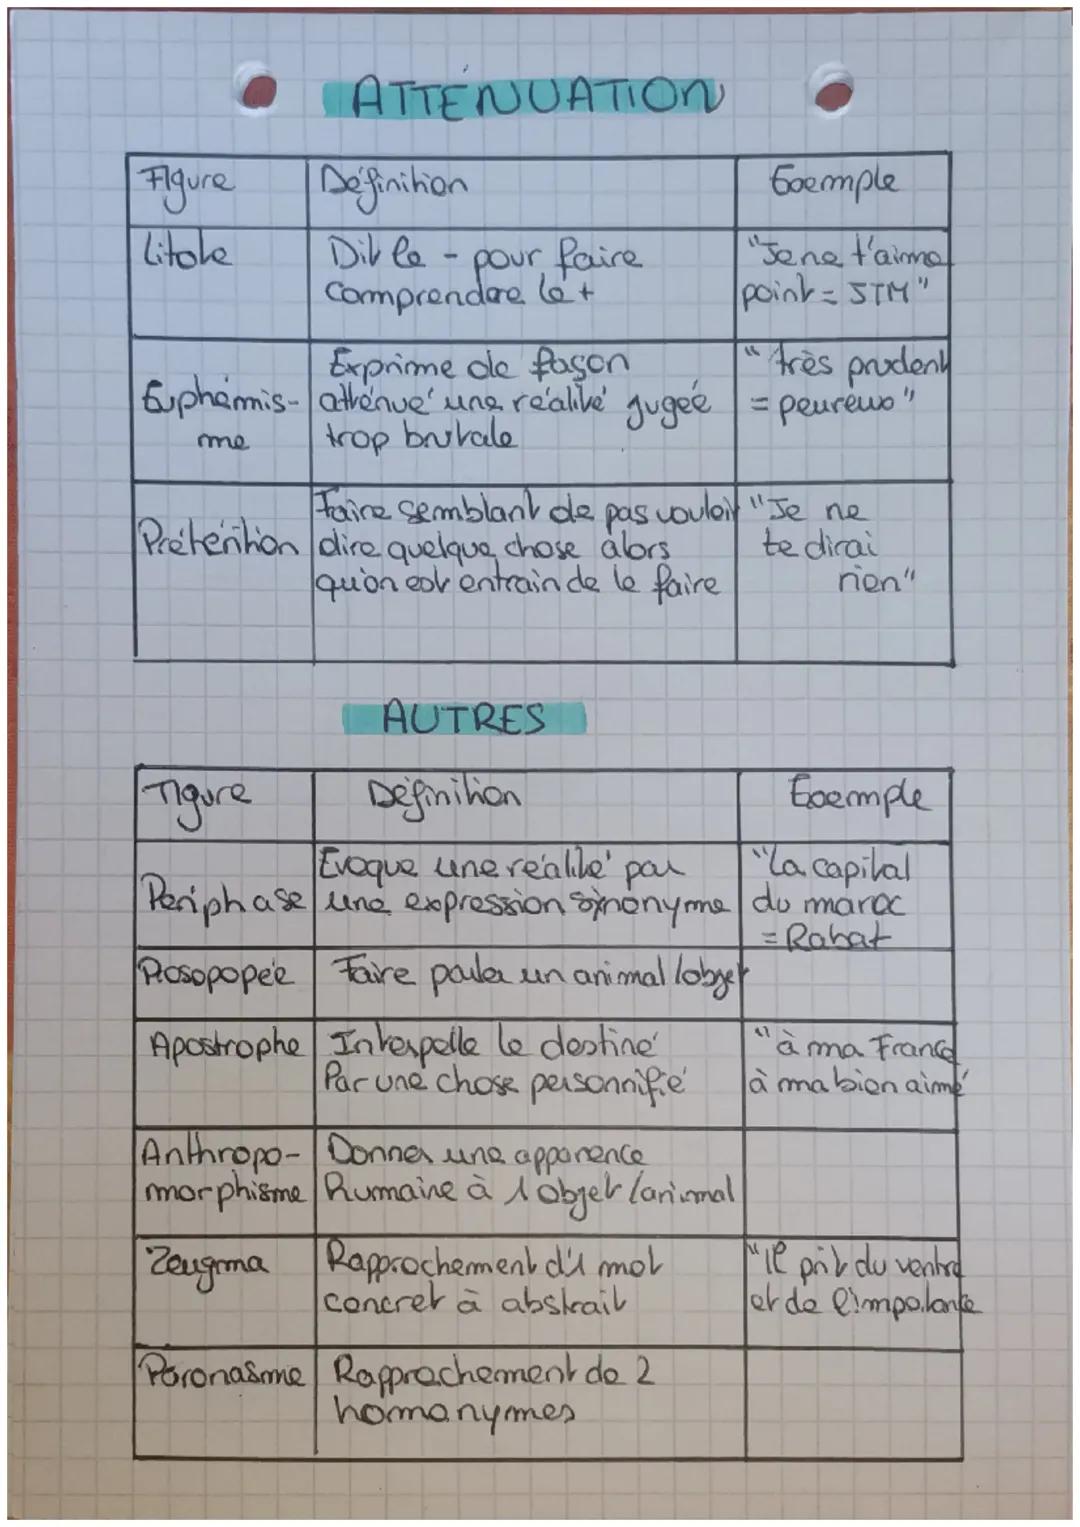 ATTÉNUATION
Figure Définition Exemple
Litote Dit le - pour faire "Je ne t'aime
comprendre le + point = JTM"
Exprime de façon "très prudent
Euphémis- atténué une réalité jugée = peureux"
me trop brutale
Faire semblant de pas vouloir "Je ne
Prétérition dire quelque chose alors te dirai
qu'on est entrain de le faire rien"
AUTRES
Figure Définition Exemple
Evoque une réalité par "La capital
Périphase une expression synonyme du maroc
= Rabat
Prosopopée Faire parler un animal/objet
Apostrophe Interpelle le destiné "à ma France
Par une chose personnifié à ma bien aimé
Anthropo- Donner une apparence
morphisme humaine à l'objet/animal
Zeugma Rapprochement d'1 mot "Il prit du ventre
concret à abstrait et de l'importance
Paronasme Rapprochement de 2
homonymes